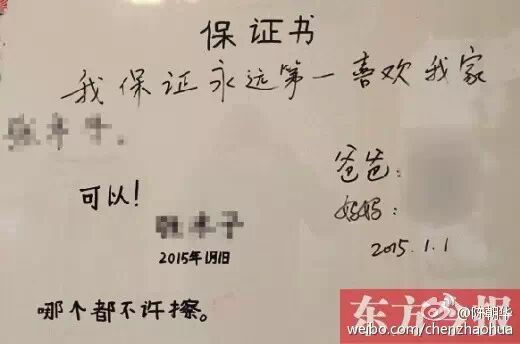 保证书
我保证永远第一喜欢我家
爸爸：
妈妈：
2015.1.1
可以！
2015年1月1日
哪个都不许擦。
东方今报
@陈朝华
weibo.com/chenzhaohua